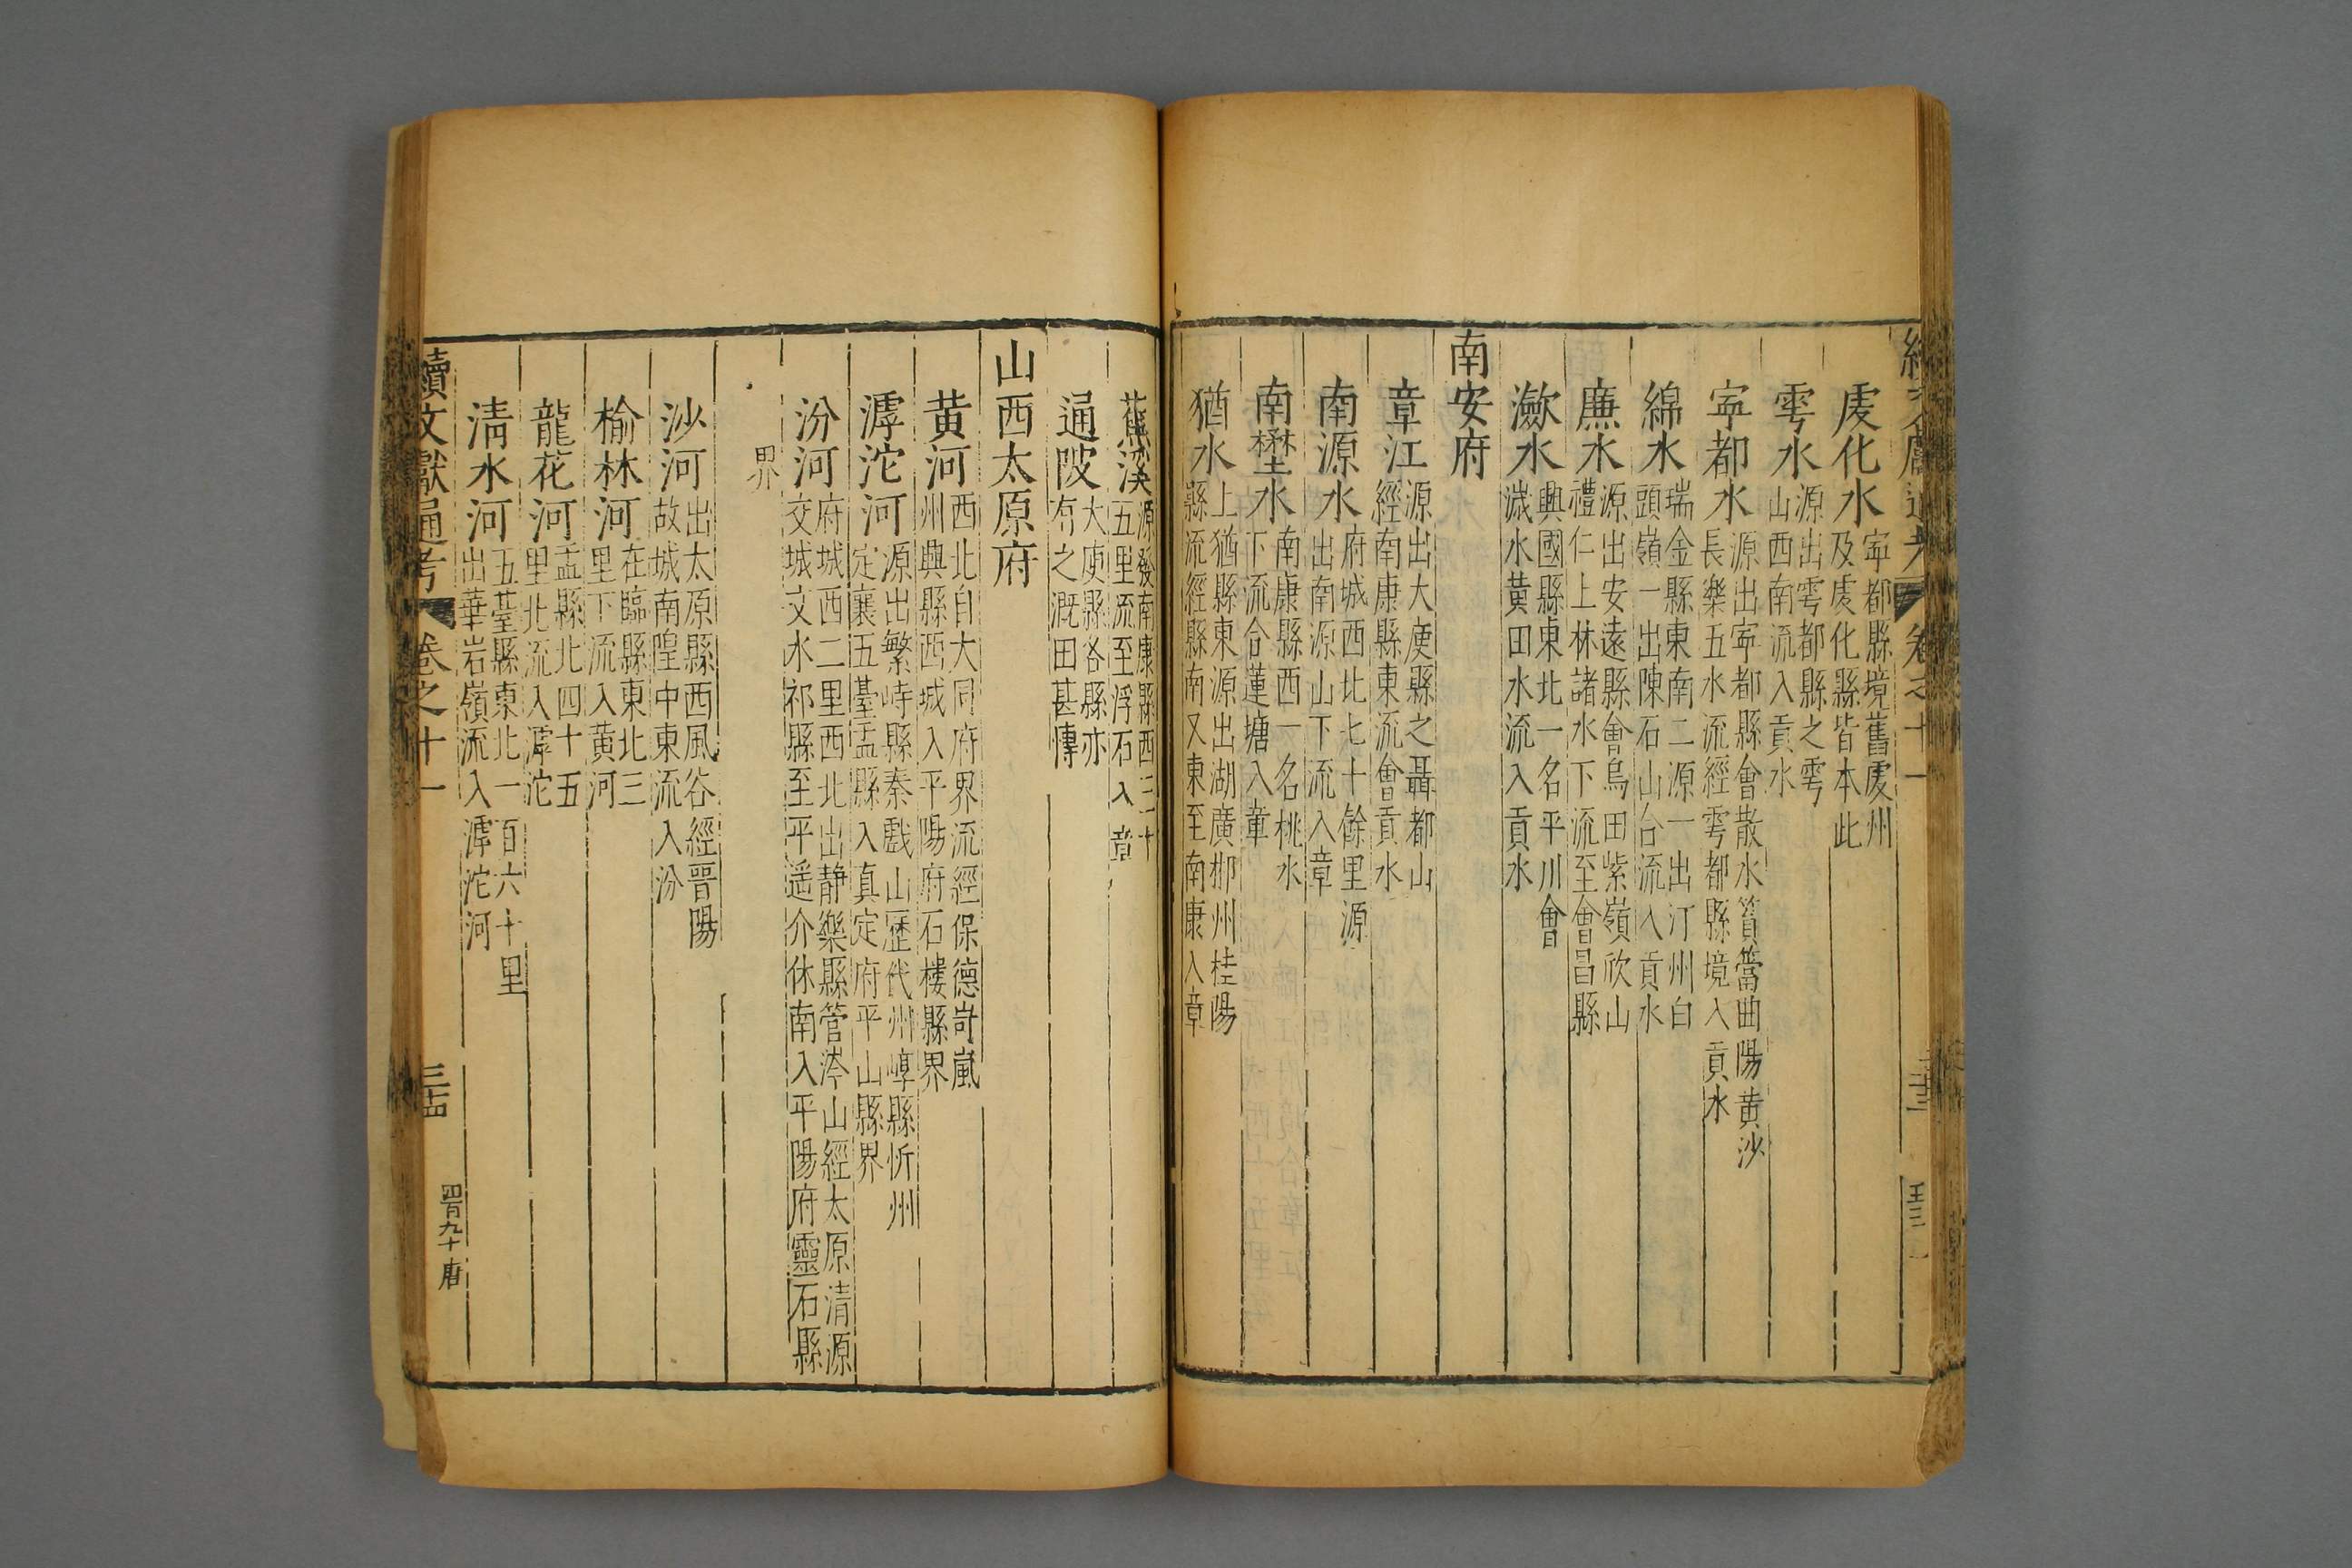 虔化水寧都縣境舊虔州
及虔化縣皆本此
雩水源出雩都縣之雩
山西南流入貢水
寧都水源出寧都縣會散水簣篢曲陽黄沙
長樂五水流經雩都縣境入貢水
綿水瑞金縣東南二源一出汀州白
頭嶺一出陳石山合流入貢水
廉水源出安遠縣會烏田紫嶺欣山
禮仁上林諸水下流至會昌縣
瀲水興國縣東北一名平川會
濊水黄田水流入貢水
南安府
章江源出大庾縣之聶都山
經南康縣東流會貢水
南源水府城西北七十餘里源
出南源山下流入章
南壄水南康縣西一名桃水
下流合蓮塘入章
猶水上猶縣東源出湖廣郴州桂陽
縣流經縣南又東至南康入章
蕉溪源發南康縣西三十
五里流至浮石入章
通陂大庾縣各縣亦
有之溉田甚慱
山西太原府
黄河西北自大同府界流經保德岢嵐
州興縣西城入平陽府石樓縣界
滹沱河源出繁峙縣秦戲山歷代州崞縣忻州
定襄五臺盂縣入真定府平山縣界
汾河府城西二里西北出静樂縣管涔山經太原清源
交城文水祁縣至平遥介休南入平陽府靈石縣
界
沙河出太原縣西風谷經晋陽
故城南隍中東流入汾
榆林河在臨縣東北三
里下流入黄河
龍花河盂縣北四十五
里北流入滹沱
清水河五臺縣東北一百六十里
出華岩嶺流入滹沱河
續文獻通考 卷之十一 三十四 四百九十 唐